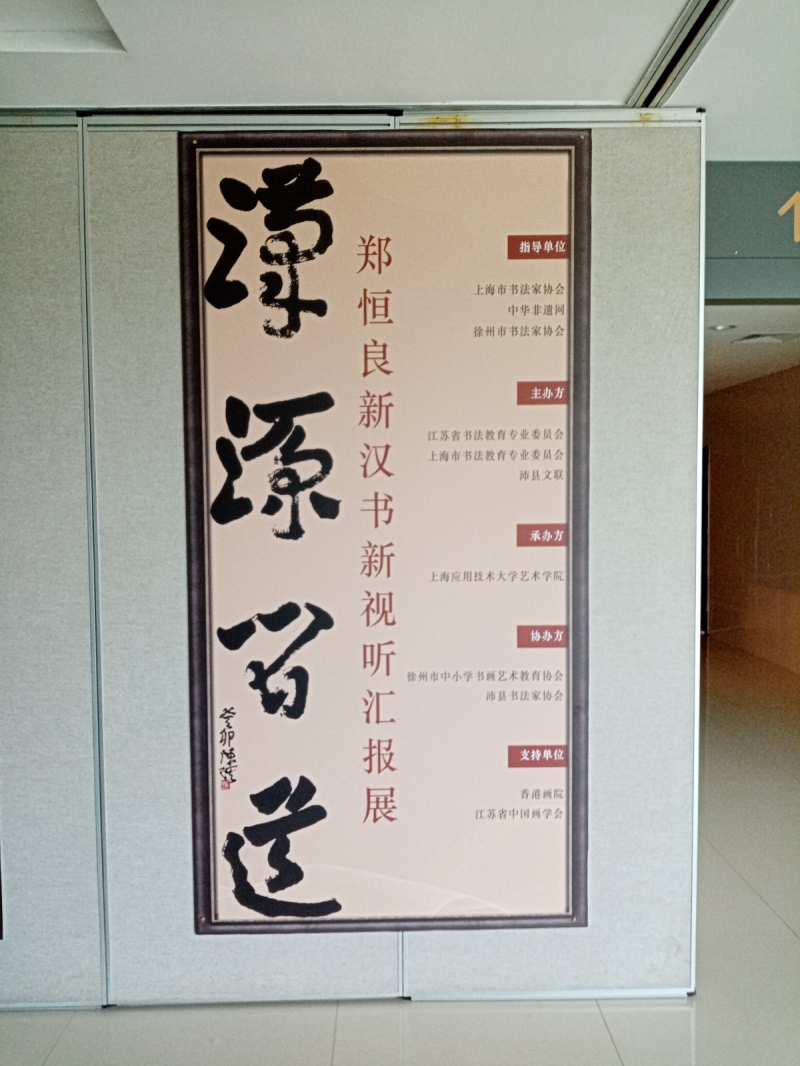 漢源道
癸卯陳
郑恒良新汉书新视听汇报展
指导单位
上海市书法家协会
中华非遗网
徐州市书法家协会
主办方
江苏省书法教育专业委员会
上海市书法教育专业委员会
沛县文联
承办方
上海应用技术大学艺术学院
协办方
徐州市中小学书画艺术教育协会
沛县书法家协会
支持单位
香港画院
江苏省中国画学会